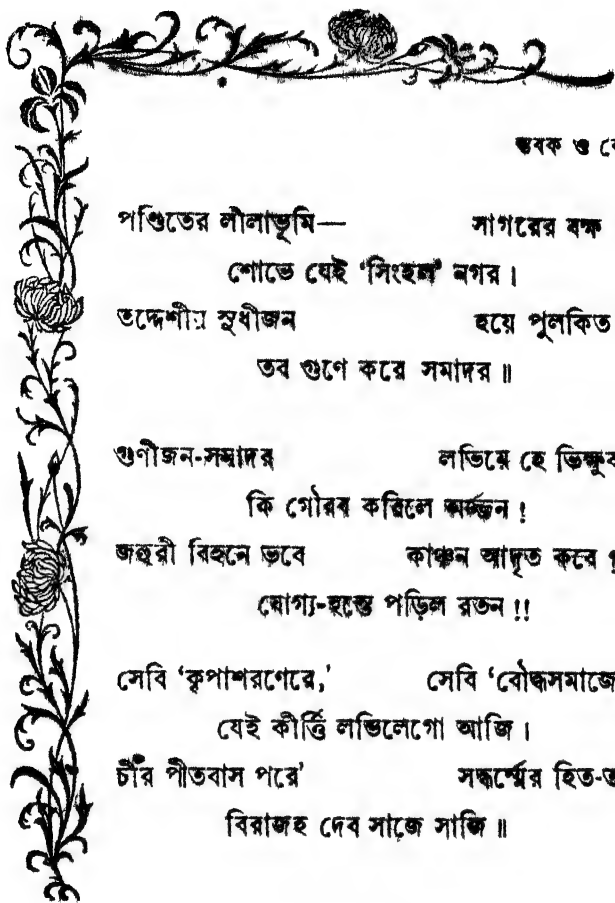 স্তবক ও
পণ্ডিতের লীলাভূমি— সাগরের বক্ষ
শোভে যেই ‘সিংহল’ নগর।
তদ্দেশীয় সুধীজন হয়ে পুলকিত
তব গুণে করে সমাদর॥
গুণীজন-সমাদর লভিয়ে হে
কি গৌরব করিলে অর্জ্জন!
জহুরী বিহনে ভবে কাঞ্চন আদৃত কবে
যোগ্য-হস্তে পড়িল রতন!!
সেবি ‘কৃপাশরণেরে,’ সেবি ‘বৌদ্ধসমাজে
যেই কীর্ত্তি লভিলেগো আজি।
চীর পীতবাস পরে’ সদ্ধর্ম্মের হিত-
বিরাজহ দেব সাজে সাজি॥